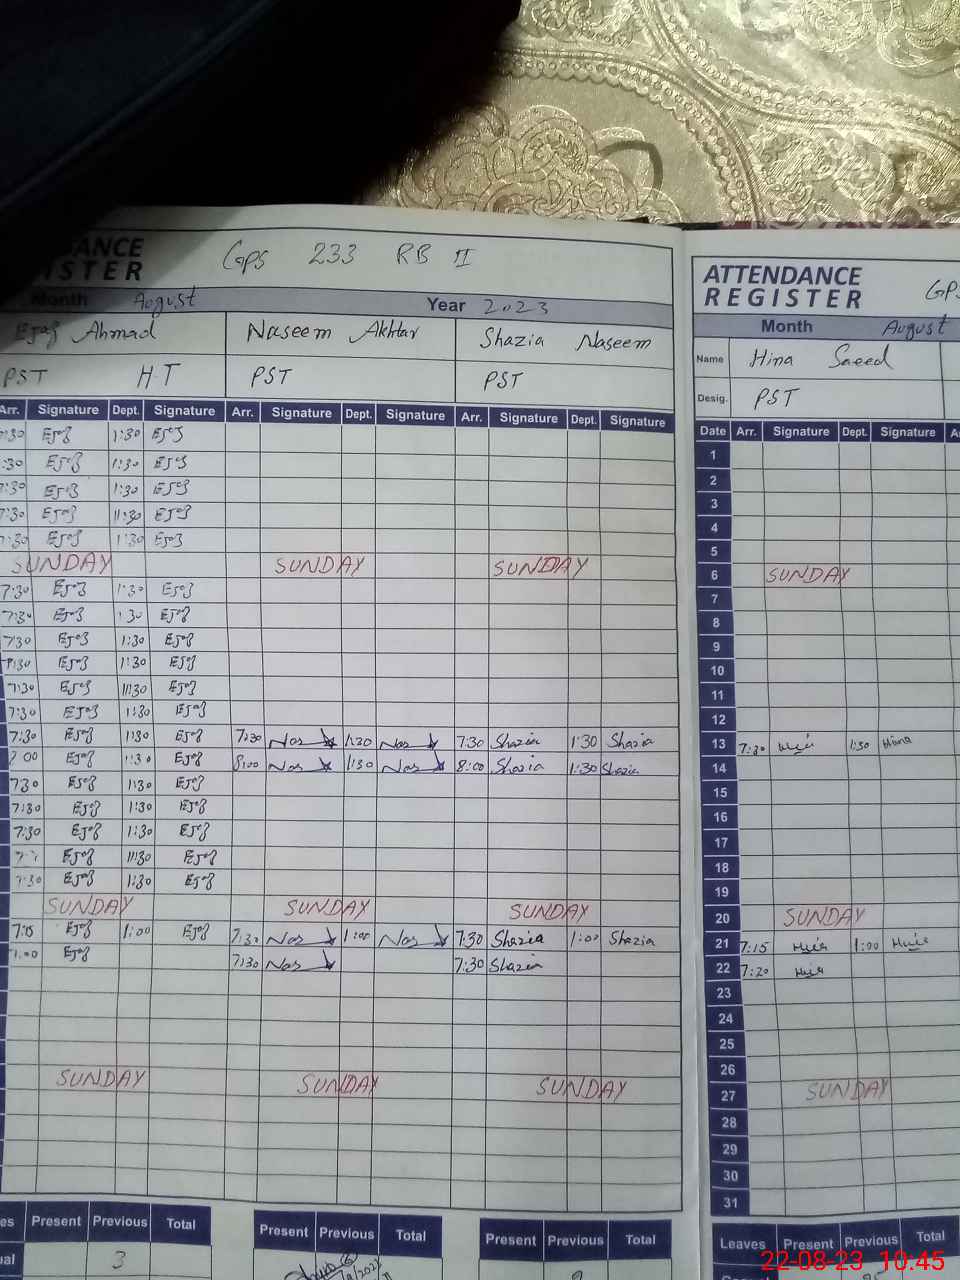 DANCE
ISTER
GPS 233 RB II
Month August Year 2023
Ejaz Ahmad Naseem Akhtar Shazia Naseem
PST H.T PST PST
Arr. Signature Dept. Signature Arr. Signature Dept. Signature Arr. Signature Dept. Signature
7:30 Ejaz 1:30 Ejaz
:30 Ejaz 1:30 Ejaz
7:30 Ejaz 1:30 Ejaz
7:30 Ejaz 11:30 Ejaz
7:30 Ejaz 1:30 Ejaz
SUNDAY SUNDAY SUNDAY
7:30 Ejaz 1:30 Ejaz
7:30 Ejaz 1:30 Ejaz
7:30 Ejaz 1:30 Ejaz
7:30 Ejaz 1:30 Ejaz
7:30 Ejaz 11:30 Ejaz
7:30 Ejaz 1:30 Ejaz
7:30 Ejaz 1:30 Ejaz 7:30 Nas 1:30 Nas 7:30 Shazia 1:30 Shazia
8:00 Ejaz 1:30 Ejaz 8:00 Nas 1:30 Nas 8:00 Shazia 1:30 Shazia
7:30 Ejaz 1:30 Ejaz
7:30 Ejaz 1:30 Ejaz
7:30 Ejaz 1:30 Ejaz
Ejaz 11:30 Ejaz
7:30 Ejaz 1:30 Ejaz
SUNDAY SUNDAY SUNDAY
7:15 Ejaz 1:00 Ejaz 7:30 Nas 1:00 Nas 7:30 Shazia 1:00 Shazia
:00 Ejaz 7:30 Nas 7:30 Shazia
SUNDAY SUNDAY SUNDAY
es Present Previous Total Present Previous Total Present Previous Total
ual 3
ATTENDANCE
REGISTER
GPS
Month August
Name Hina Saeed
Desig. PST
Date Arr. Signature Dept. Signature A
1
2
3
4
5
6 SUNDAY
7
8
9
10
11
12
13 7:30 1:30 Hina
14
15
16
17
18
19
20 SUNDAY
21 7:15 1:00
22 7:20
23
24
25
26
27 SUNDAY
28
29
30
31
Leaves Present Previous Total
22-08-23 10:45